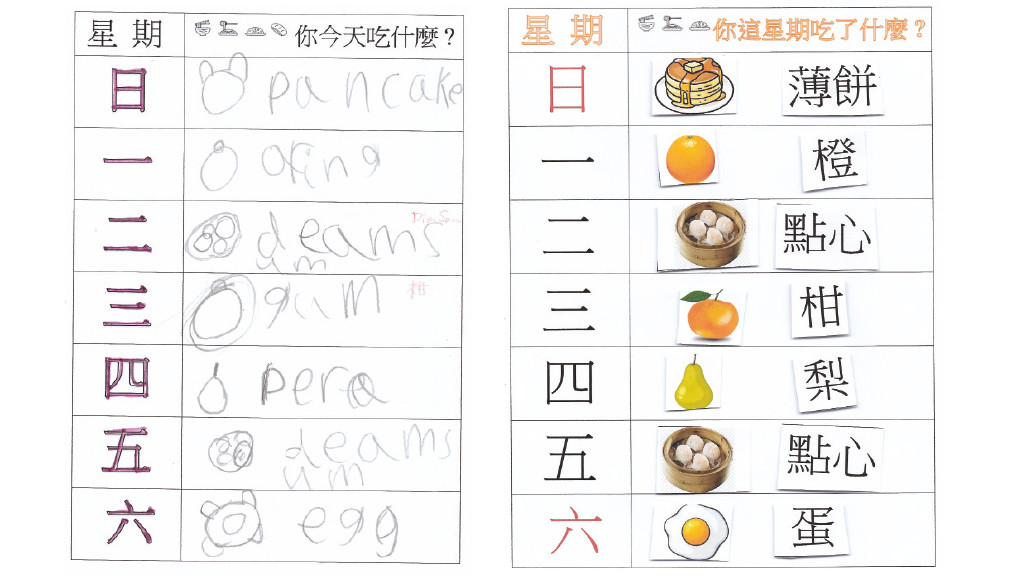 星期 你今天吃什麼？
日 pancake
一 oring
二 deams um Dim Sum
三 gum 柑
四 pera
五 deams um
六 egg
星期 你這星期吃了什麼？
日 薄餅
一 橙
二 點心
三 柑
四 梨
五 點心
六 蛋